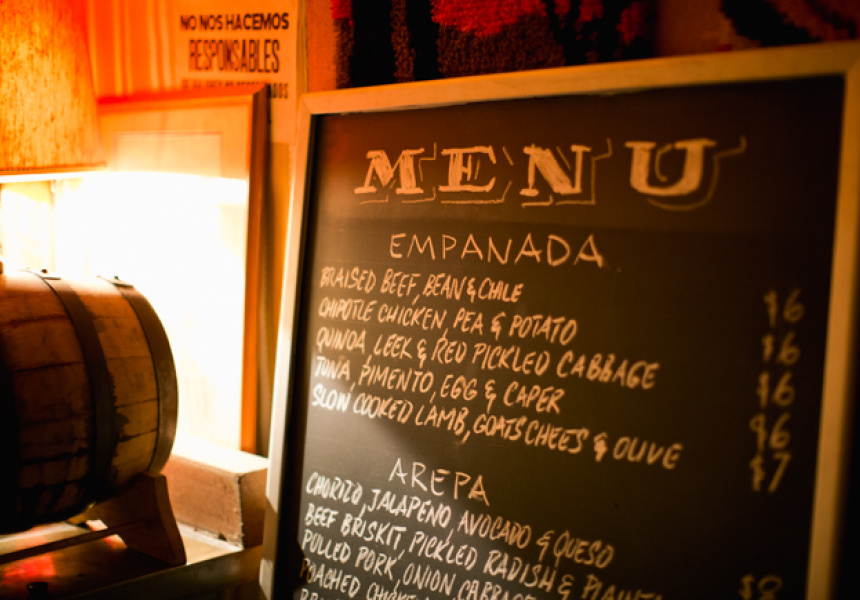 NO NOS HACEMOS
RESPONSABLES
MENU
EMPANADA
BRAISED BEEF, BEAN & CHILE $6
CHIPOTLE CHICKEN, PEA & POTATO $6
QUINOA, LEEK & RED PICKLED CABBAGE $6
TUNA, PIMENTO, EGG & CAPER $6
SLOW COOKED LAMB, GOATS CHEES & OLIVE $7
AREPA
CHORIZO, JALAPENO, AVOCADO & QUESO
BEEF BRISKIT, PICKLED RADISH & $8
PULLED PORK, ONION, CABBAGE
POACHED